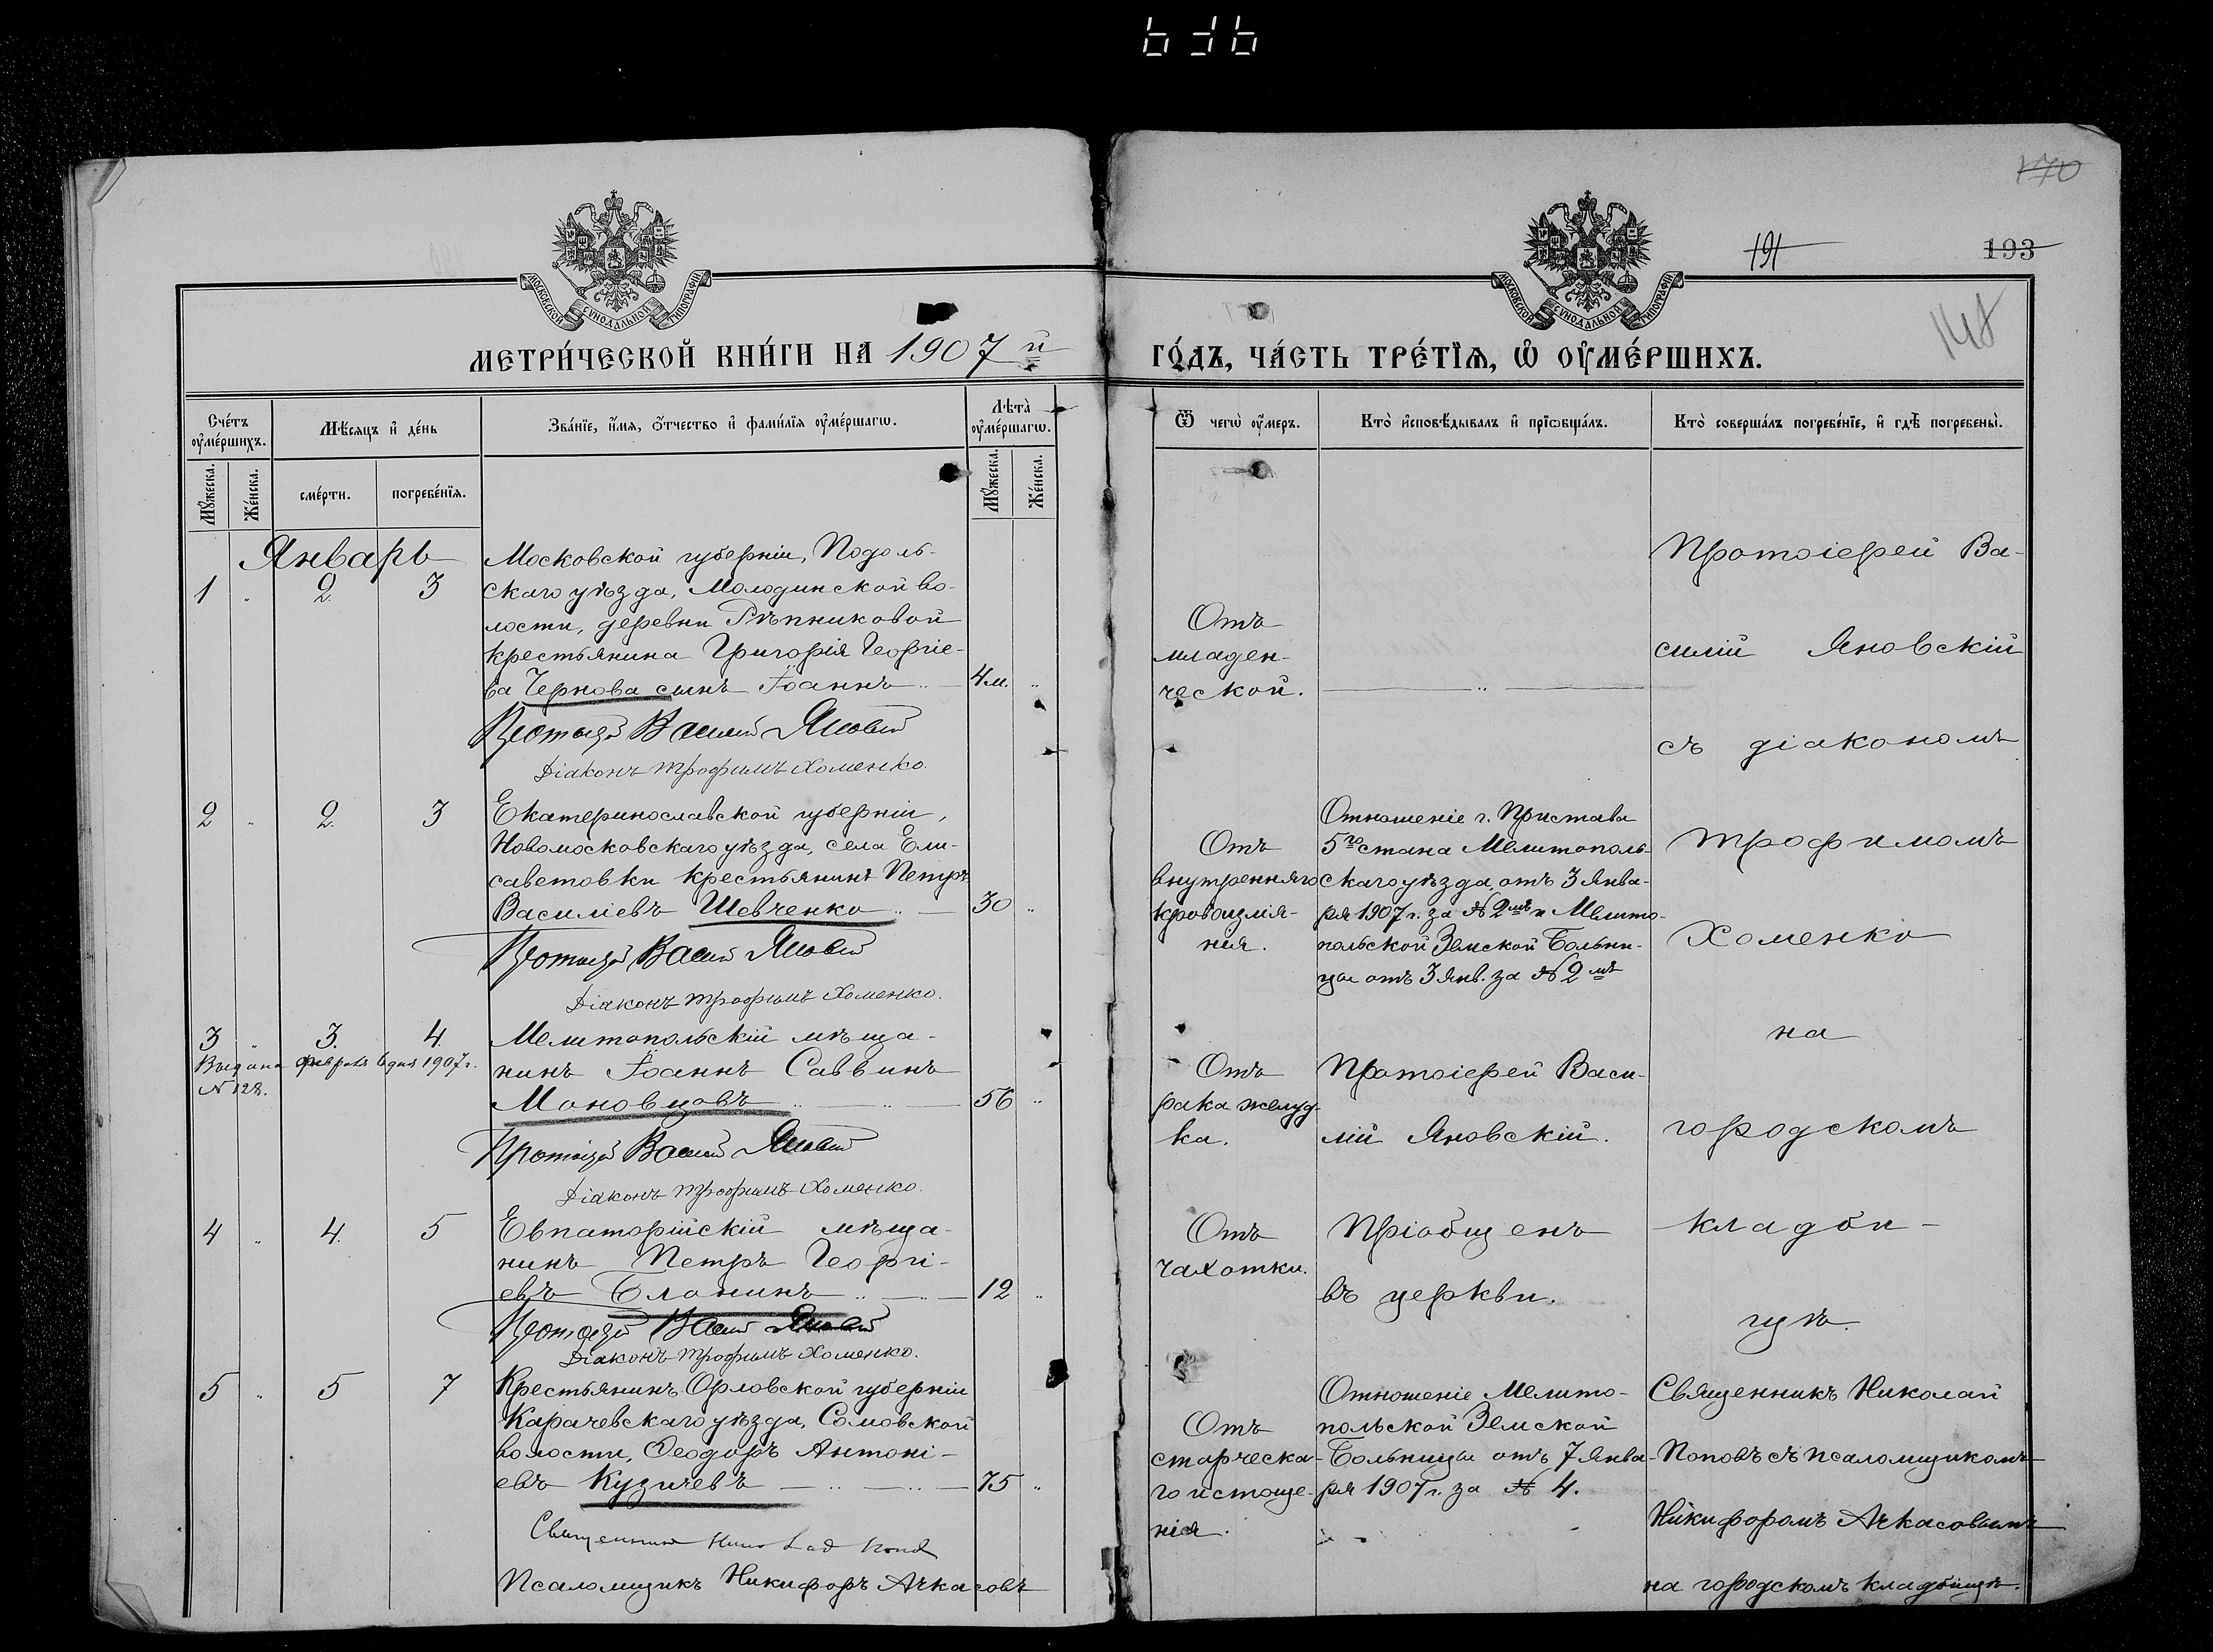 170
191
193
148
МОСКОВСКОЙ СѴНОДАЛЬНОЙ ТИПОГРАФІИ
МОСКОВСКОЙ СѴНОДАЛЬНОЙ ТИПОГРАФІИ
МЕТРИ́ЧЕСКОЙ КНИ́ГИ НА 1907й
ГО́ДЪ, ЧА́СТЬ ТРЕ́ТЇѦ, Ѡ҆ ОУ҆МЕ́РШИХЪ.
Сче́тъ оу҆ме́ршихъ.
Мѣ́сѧцъ и҆ де́нь
Зва́нїе, и҆́мѧ, ѻ҆́тчество и҆ фами́лїѧ оу҆ме́ршагѡ.
Лѣта̀ оу҆ме́ршагѡ.
Ѿ чегѡ̀ оу҆́меръ.
Кто̀ и҆сповѣ́дывалъ и҆ прїѡбща́лъ.
Кто̀ соверша́лъ погребе́нїе, и҆ гдѣ̀ погребены̀.
Мꙋ́жеска.
Же́нска.
сме́рти.
погребе́нїѧ.
Мꙋ́жеска.
Же́нска.
Январь
1 " 2. 3
Московской губерніи, Подоль-
скаго уѣзда, Молодинской во-
лости, деревни Рѣпниковой
крестьянина Григорія Георгіе-
ва Чернова сынъ Іоаннъ
4 м. "
Протоіерей Василій Яновскій
Діаконъ Трофимъ Хоменко.
Отъ
младен-
ческой.
Протоіерей Ва-
силій Яновскій
съ діакономъ
Трофимомъ
Хоменко
на
городскомъ
кладби-
щѣ.
2 " 2. 3
Екатеринославской губерніи,
Новомосковскаго уѣзда, села Ели-
саветовки крестьянинъ Петръ
Василіевъ Шевченко
30 "
Протоіерей Василій Яновскій
Діаконъ Трофимъ Хоменко.
Отъ
внутренняго
кровоизлія-
нія.
Отношеніе г. Пристава
5го стана Мелитополь-
скаго уѣзда, отъ 3 Янва-
ря 1907 г. за № 2мъ и Мелито-
польской Земской Больни-
цы отъ 3 Янв. за № 2мъ
3 " 3. 4.
Выдана февраля 6 дня 1907 г.
№ 128.
Мелитопольскій мѣща-
нинъ Іоаннъ Саввинъ
Моновцовъ
56 "
Протоіерей Василій Яновскій
Діаконъ Трофимъ Хоменко.
Отъ
рака желуд-
ка.
Протоіерей Васи-
лій Яновскій.
4 " 4. 5
Евпаторійскій мѣща-
нинъ Петръ Георгі-
евъ Блонинъ
12 "
Протоіерей Василій Яновскій
Діаконъ Трофимъ Хоменко.
Отъ
чахотки.
Пріобщенъ
въ церкви.
5 " 5 7
Крестьянинъ Орловской губерніи
Карачевскаго уѣзда, Сомовской
волости, Ѳеодоръ Антоні-
евъ Кузичевъ
75 "
Священникъ Николай Поповъ
Псаломщикъ Никифоръ Ачкасовъ
Отъ
старческа-
го истоще-
нія.
Отношеніе Мелито-
польской Земской
Больницы отъ 7 Янва-
ря 1907 г. за № 4.
Священникъ Николай
Поповъ съ псаломщикомъ
Никифоромъ Ачкасовымъ
на городскомъ кладбищѣ.